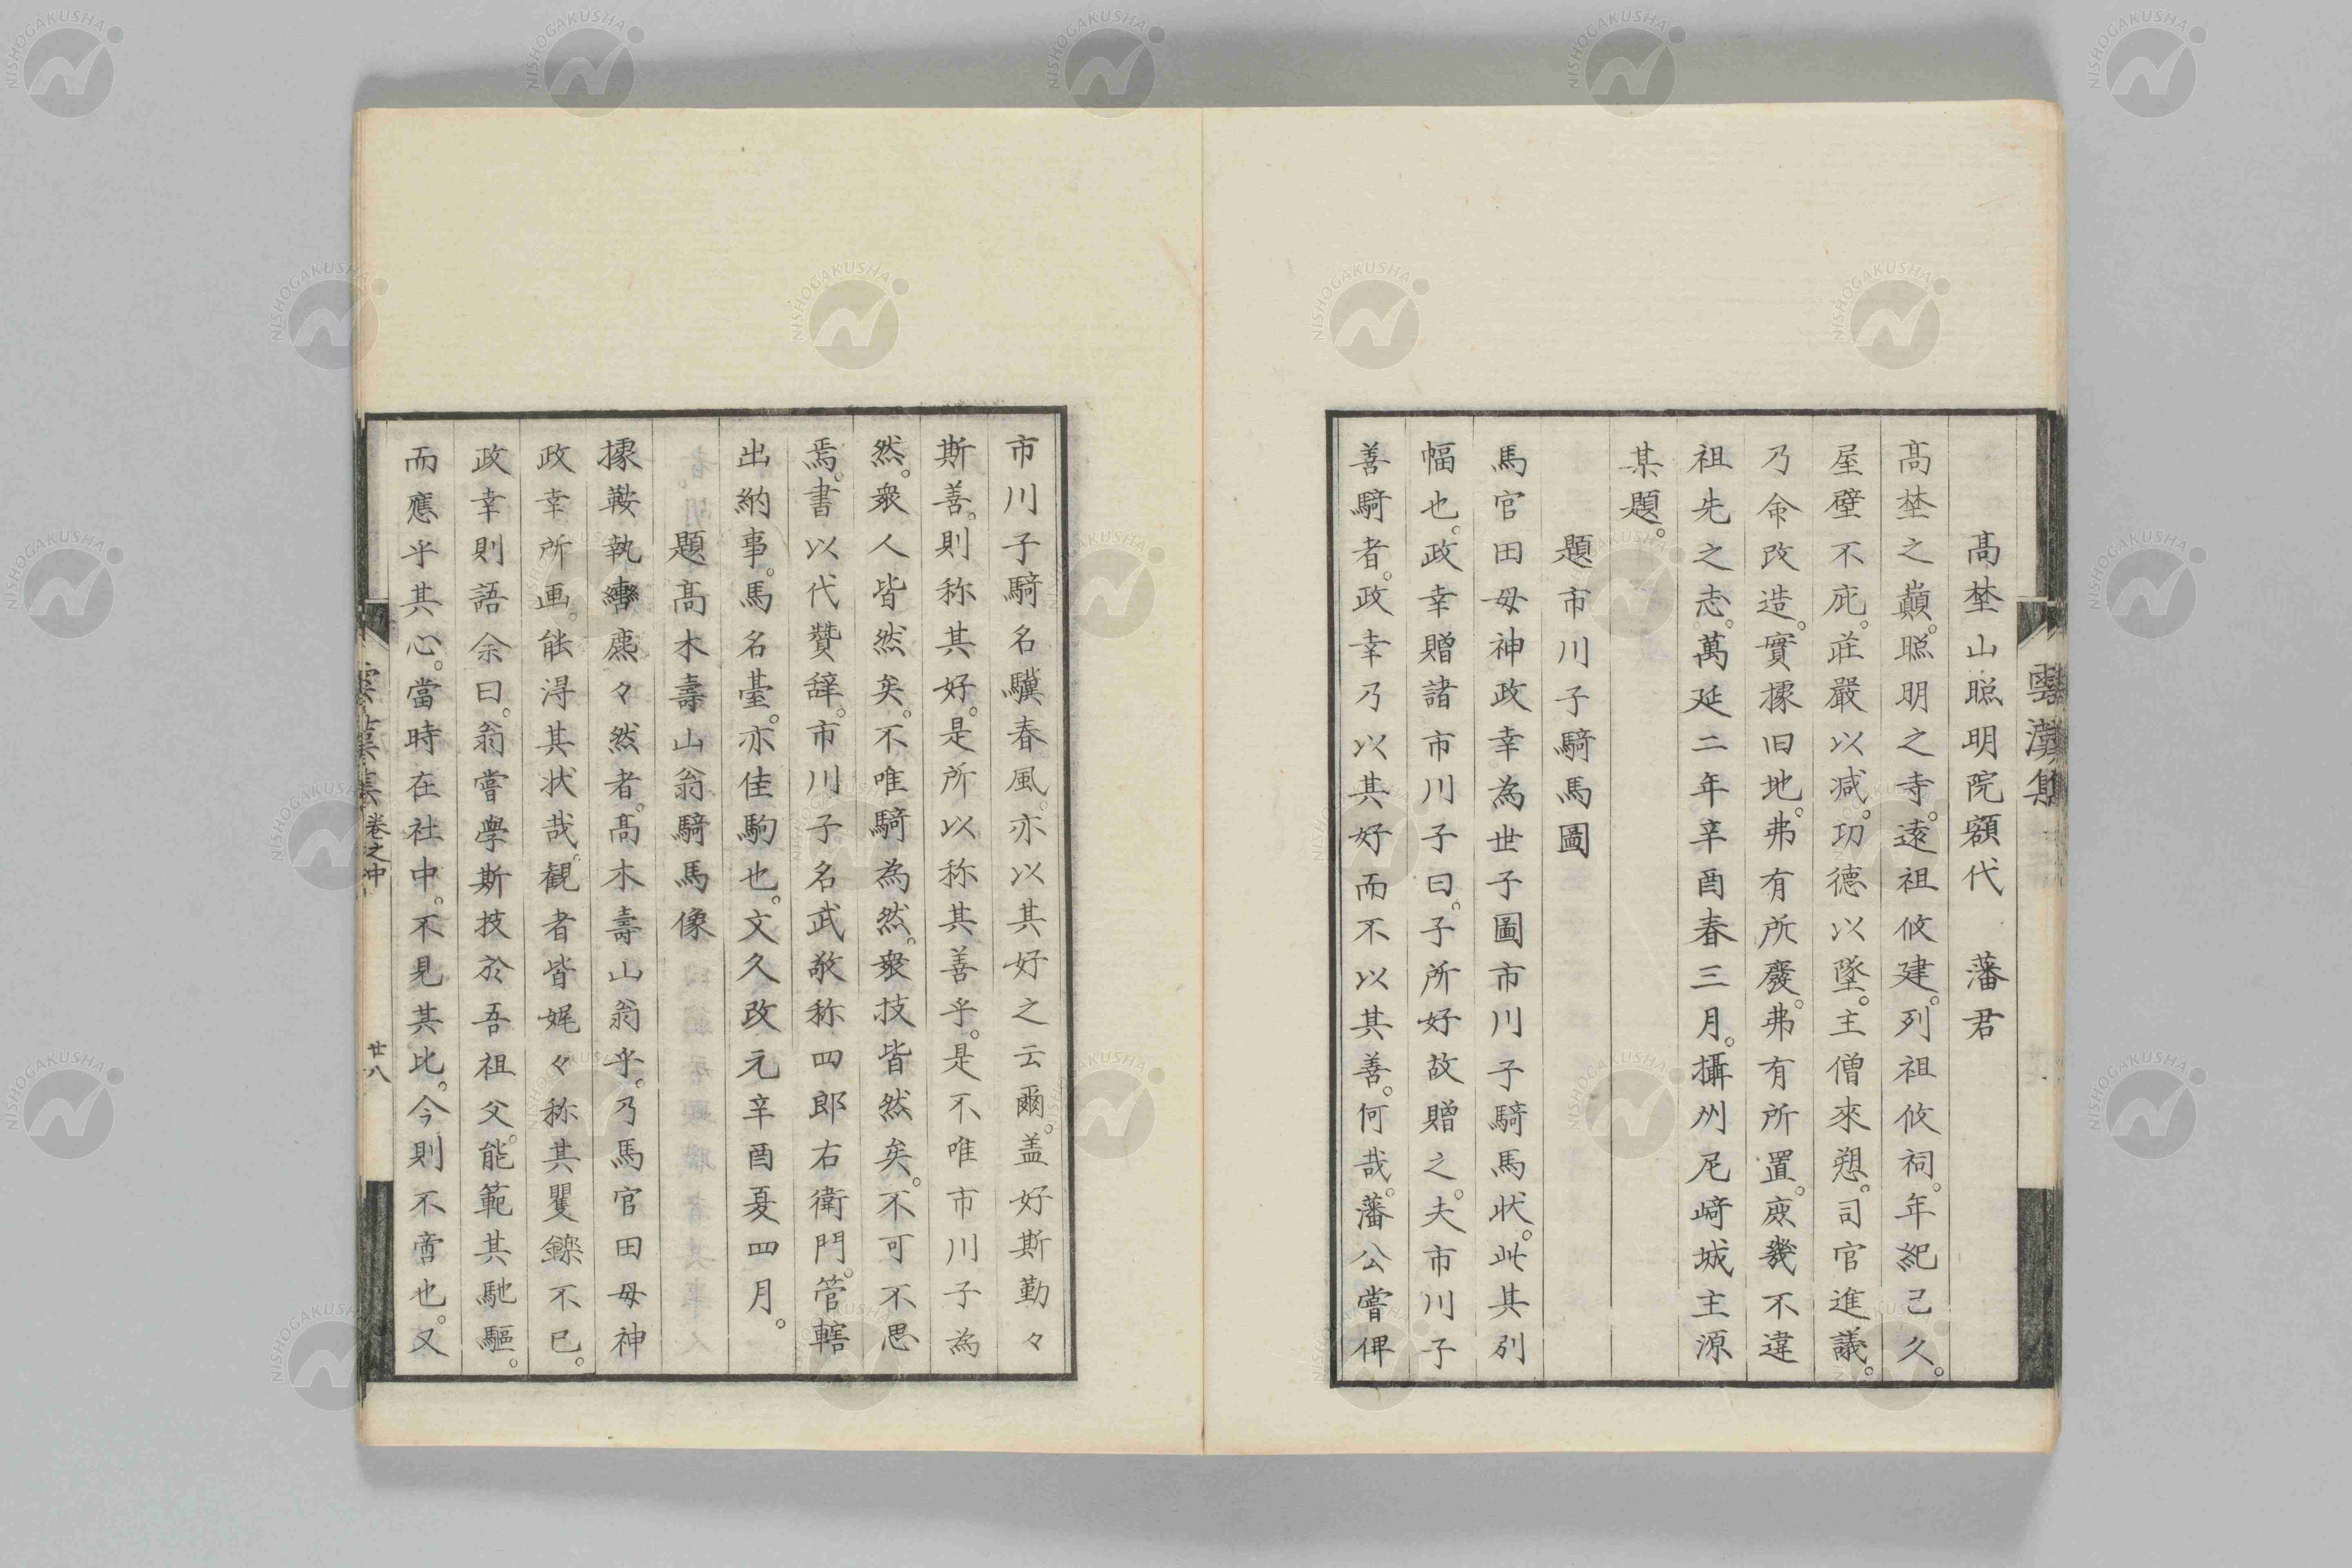 高埜山聡明院額代 藩君
高埜之巓。聡明之寺。遠祖攸建。列祖攸祠。年紀已久。
屋壁不庇。莊嚴以减。功德以墜。主僧來愬。司官進議。
乃命改造。實據旧地。弗有所廢。弗有所置。庶幾不違
祖先之志。萬延二年辛酉春三月。攝州尼﨑城主源
某題。
題市川子騎馬圖
馬官田母神政幸為世子圖市川子騎馬状。此其列
幅也。政幸贈諸市川子曰。子所好故贈之。夫市川子
善騎者。政幸乃以其好而不以其善。何哉。藩公嘗俾
市川子騎名驥春風。亦以其好之云爾。盖好斯勤々
斯善。則称其好。是所以称其善乎。是不唯市川子為
然。衆人皆然矣。不唯騎為然。衆技皆然矣。不可不思
焉。書以代贊辞。市川子名武敬称四郎右衛門。管轄
出納事。馬名臺。亦佳駒也。文久改元辛酉夏四月。
題高木壽山翁騎馬像
據鞍執轡麃々然者。高木壽山翁乎。乃馬官田母神
政幸所画。能淂其状哉。観者皆娓々称其矍鑠不已。
政幸則語余曰。翁嘗學斯技於吾祖父。能範其馳驅。
而應乎其心。當時在社中。不見其比。今則不啻也。又
卷之中
廿八
NISHOGAKUSHA